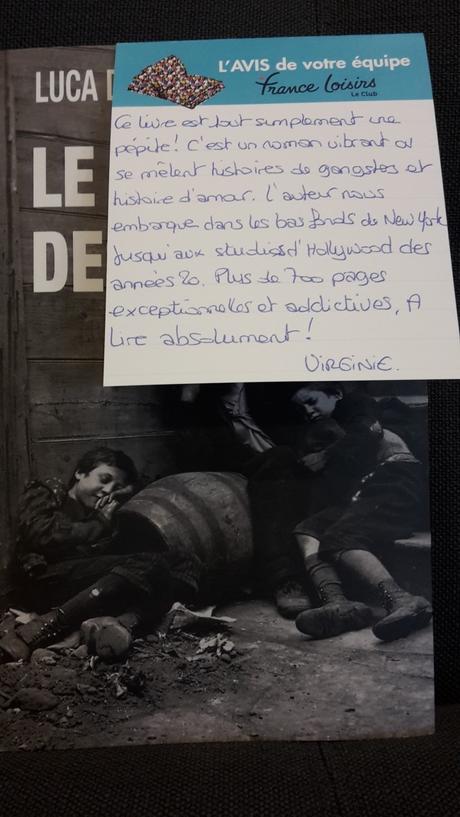 LUCA D
LE
DE
L'AVIS de votre équipe
France Loisirs
Le Club
Ce livre est tout simplement une
pépite! C'est un roman vibrant où
se mêlent histoires de gangsters et
histoire d'amour. L'auteur nous
embarque dans les bas fonds de New York
jusqu'aux studios d'Hollywood des
années 20. Plus de 700 pages
exceptionnelles et addictives, A
lire absolument!
VIRGINIE.